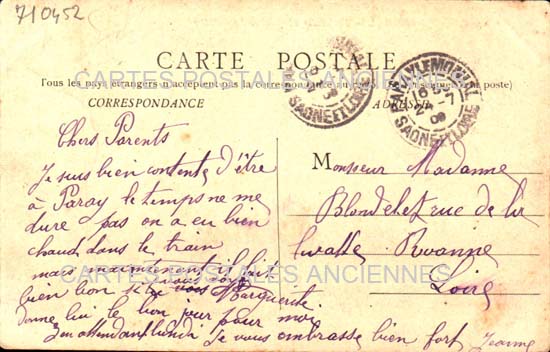 710452
CARTE POSTALE
Tous les pays étrangers n'acceptent pas la correspondance au
CARTES POSTALES ANCIENNES
CORRESPONDANCE
ADRESSE
PARAY LE MONIAL
SAONE ET LOIRE
SAONE ET LOIRE
Chers Parents
Je suis bien contente d'être
à Paray le temps ne me
dure pas on a eu bien
chaud dans le train
mais maintenant il fait
bien bon si vous Marguerite
donne lui le bon jour pour moi
En attendant lundi Je vous embrasse bien fort Jeanne
Monsieur Madame
Blondelet rue de la
Roanne
Loire
CARTES POSTALES ANCIENNES